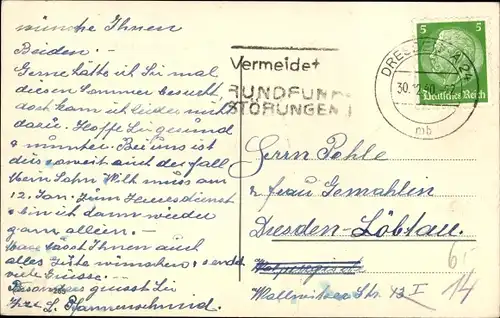 wünsche Ihnen
Beiden. –
Gerne hätte ich Sie mal
diesen Sommer besucht,
doch kam ich leider nicht
dazu. Hoffe Sie gesund
& munter. Bei uns ist
dies soweit auch der Fall
Mein Sohn Willi muss am
12. Jan. zum Heeresdienst
& bin ich dann wieder
ganz allein. –
lässt Ihnen auch
alles Gute wünschen, & sendet
viele Grüsse. –
Besonders grüsst Sie
Ihre L. Pfannenschmid.
Vermeidet
RUNDFUNK-
STÖRUNGEN!
DRESDEN A 24
30.12.40
mb
5 5
Deutsches Reich
Herrn Pohle
& Frau Gemahlin
Dresden-Löbtau.
Wallwitzer Str. 13 I
6.-
14